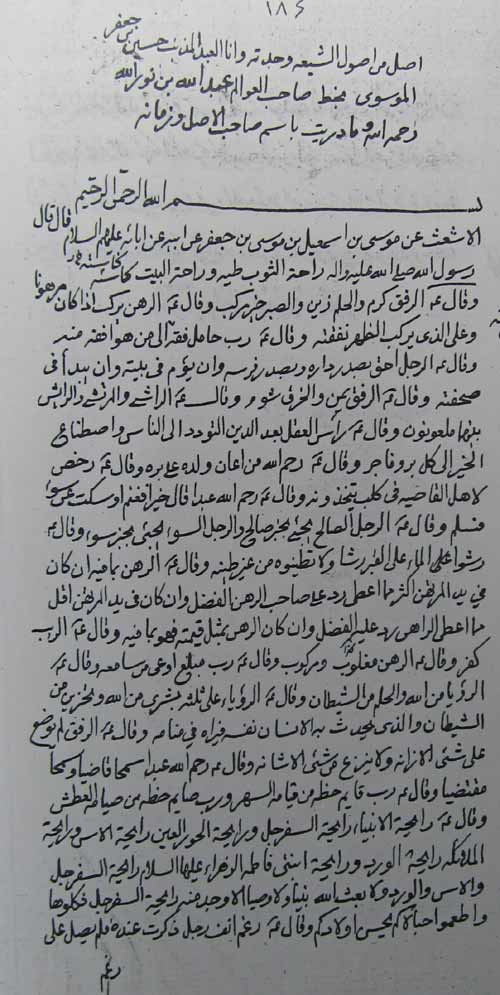 ١٨٤
اصل من اصول الشيعه وجدته وانا العبد المذنب حسين بن جعفر
الموسوى بخط صاحب العوالم عبد الله بن نور الله
رحمه الله وما دريت باسم صاحب الاصل وزمانه
بسم الله الرحمن الرحيم
الاشعث عن موسى بن اسمعيل بن موسى بن جعفر عن ابيه عن ابائه عليهم السلام قال قال
رسول الله صلى الله عليه واله راحة الثوب طيه وراحة البيت
وقال ع الرفق كرم والحلم زين والصبر خير مركب وقال ع الرهن يركب اذا كان مرهونا
وعلى الذى يركب الظهر نفقته وقال ع رب حامل فقه الى من هو افقه منه
وقال ع الرجل احق بصدر داره وبصدر فرسه وان يؤم فى بيته وان يبدأ فى
صحفته وقال ع الرفق يمن والخرق شوم وقال ع الراشى والمرتشى والرايش
بينهما ملعونون وقال ع رأس العقل بعد الدين التودد الى الناس واصطناع
الخير الى كل بر وفاجر وقال ع رحم الله من اعان ولده على بره وقال ع رخص
لاهل القاصيه فى كلب يتخذونه وقال ع رحم الله عبدا قال خيرا فغنم او سكت عن سوء
فسلم وقال ع الرجل الصالح يجئ بخبر صالح والرجل السوء يجئ بخبر سوء وقال ع
رشوا على الماء على القبر رشا ولا تطينوه من غير طينه وقال ع الرهن بما فيه ان كان
في يد المرتهن اكثر مما اعطى رد على صاحب الرهن الفضل وان كان فى يد المرتهن اقل
مما اعطى الراهن رد عليه الفضل وان كان الرهن بمثل قيمته فهو بما فيه وقال ع الريب
كفر وقال ع الرهن محلوب ومركوب وقال ع رب مبلغ اوعى من سامعه وقال ع
الرؤيا من الله والحلم من الشيطان وقال ع الرؤيا على ثلثه بشرى من الله وتحزين من
الشيطان والذى يحدث به الانسان نفسه فيراه فى منامه وقال ع الرفق لم يوضع
على شئ الا زانه ولا ينزع من شئ الا شانه وقال ع رحم الله عبدا سمحا قاضيا وسمحا
مقتضيا وقال ع رب قايم حظه من قيامه السهر ورب صايم حظه من صيامه العطش
وقال ع رايحة الانبياء رايحة السفرجل ورايحة الحور العين رايحة الاس ورايحة
الملائكة رايحة الورد ورايحة ابنتى فاطمة الزهراء عليها السلام رايحة السفرجل
والاس والورد ولا بعث الله نبيا ولا وصيا الا وجد منه رايحة السفرجل فكلوها
واطعموا حبالاكم يحسن اولادكم وقال ع رغم انف رجل ذكرت عنده فلم يصل على
رغم